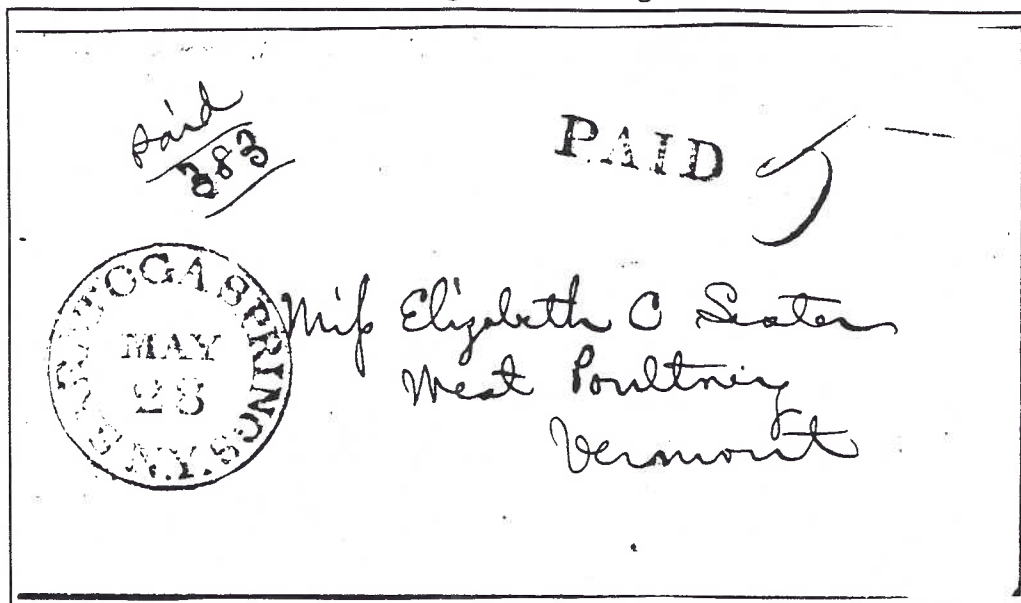 paid
383
PAID 5
SARATOGA SPRINGS N.Y.
MAY
28
Miſs Elizabeth C
West Poultney
Vermont